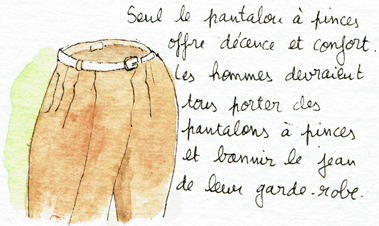 Seul le pantalon à pinces
offre décence et confort.
Les hommes devraient
tous porter des
pantalons à pinces
et bannir le jean
de leur garde-robe.